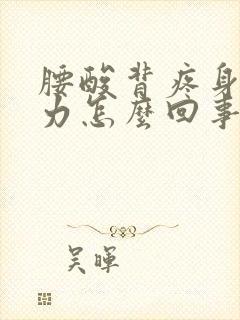 腰酸背疼身
力怎麼回事
吴暉